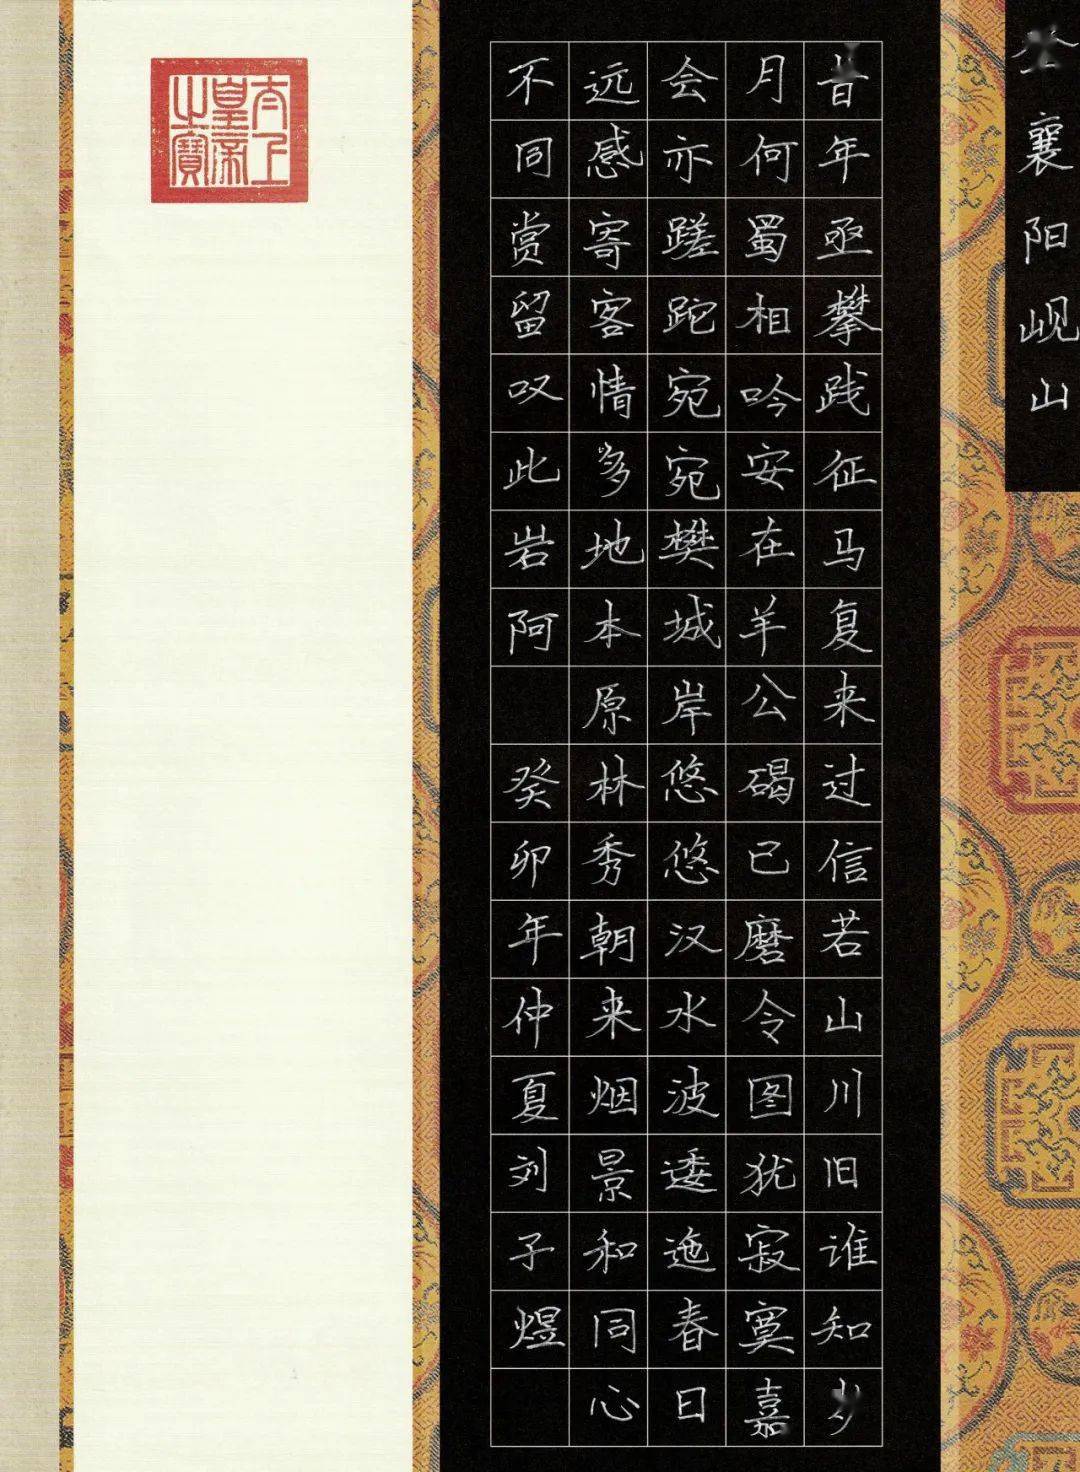 襄阳岘山
昔年亟攀践征马复来过信若山川旧谁知岁
月何蜀相吟安在羊公碣已磨令图犹寂寞嘉
会亦蹉跎宛宛樊城岸悠悠汉水波逶迤春日
远感寄客情多地本原林秀朝来烟景和同心
不同赏留叹此岩阿 癸卯年仲夏刘子煜
太上皇帝之寶